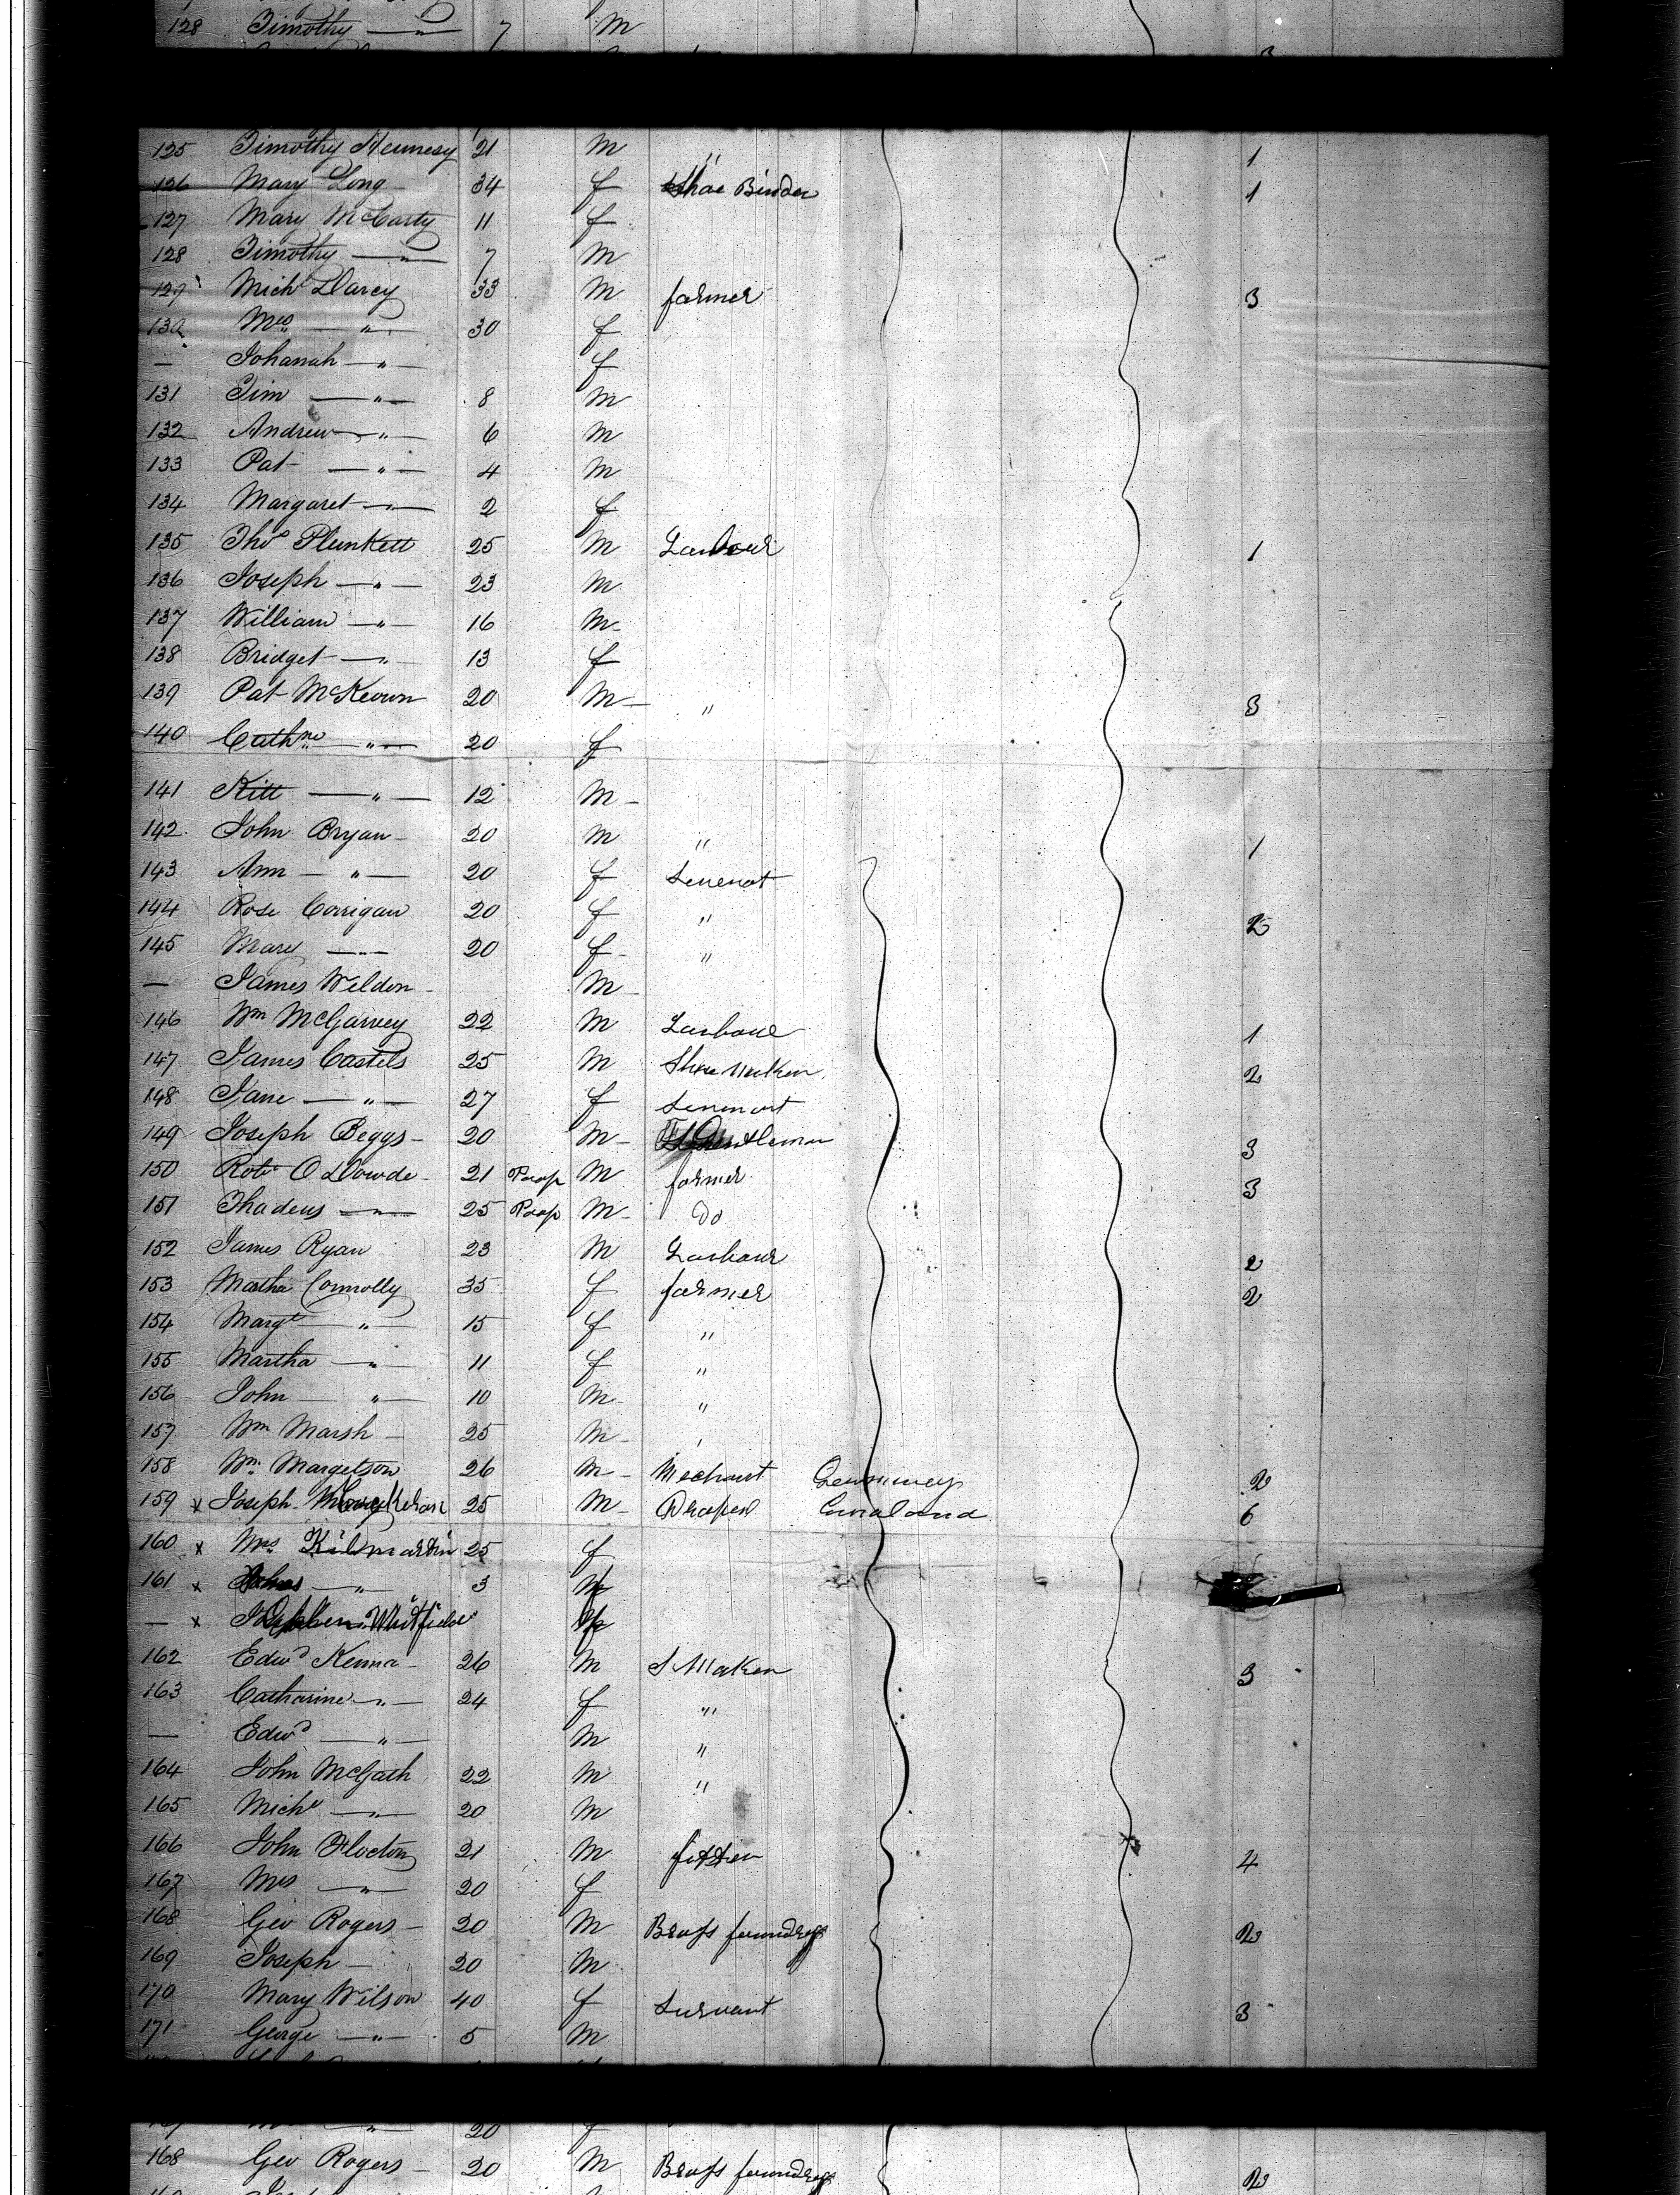 128 Timothy —"— 7 M
125 Timothy Hennesy 21 M " 1
126 Mary Long 34 f Shoe Binder 1
127 Mary McCarty 11 f
128 Timothy —"— 7 M
129 Michl Darcy 33 M farmer 3
130 Mrs —"— 30 f
— Johanah —"— f
131 Tim —"— 8 M
132 Andrew —"— 6 M
133 Pat —"— 4 M
134 Margaret —"— 2 f
135 Thos Plunkett 25 M 1
136 Joseph —"— 23 M
137 William —"— 16 M
138 Bridget —"— 13 f
139 Pat McKeown 20 M " 3
140 Cathne —"— 20 f
141 Kitt —"— 12 M
142 John Bryan 20 M " 1
143 Ann —"— 20 f
144 Rose Corrigan 20 f " 2
145 Mary —"— 20 f "
— James Weldon M
146 Wm McGarvey 22 M 1
147 James Castels 25 M Shoe Maker 2
148 Jane —"— 27 f
149 Joseph Beggs 20 M Gentleman 3
150 Robt O Dowde 21 Poop M farmer 3
151 Thadeus —"— 25 Poop M do
152 James Ryan 23 M 2
153 Martha Connolly 35 f farmer 2
154 Margt —"— 15 f "
155 Martha —"— 11 f "
156 John —"— 10 M "
157 Wm Marsh 25 M
158 Wm Margetson 26 M 2
159 x Joseph 25 M Draper 6
160 x Mrs Kilmartin 25 f
161 x —"— 3
— x Whitfield
162 Edwd Kenna 26 M S Maker 3
163 Catharine —"— 24 f "
— Edwd —"— M "
164 John McGath 22 M "
165 Michl —"— 20 M
166 John Flocton 21 M 4
167 Mrs —"— 20 f
168 Geo Rogers 20 M Brass 2
169 Joseph — 20 M
170 Mary Wilson 40 f Survant 3
171 George —"— 5 M
20
168 Geo Rogers 20 M Brass 2